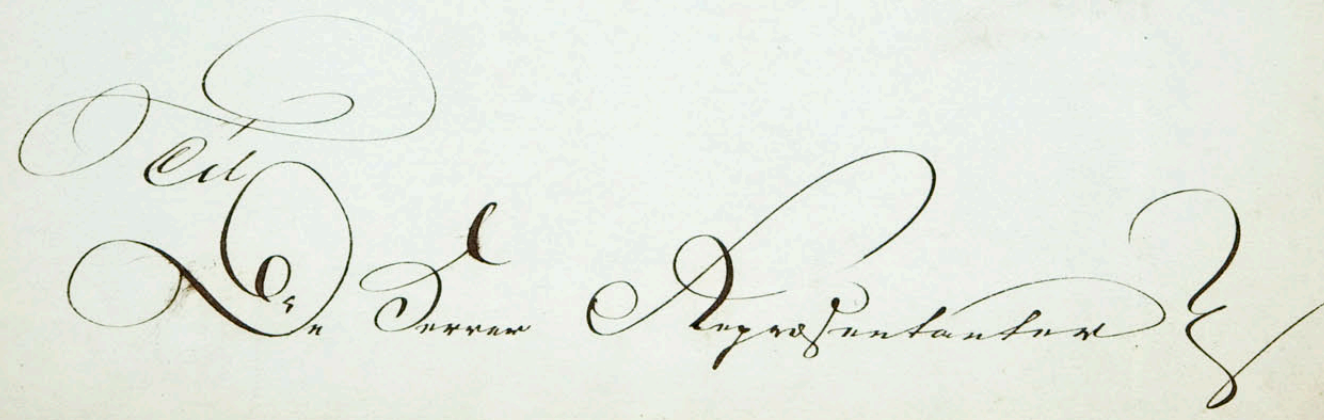 Til
De Herrer Repræsentanter